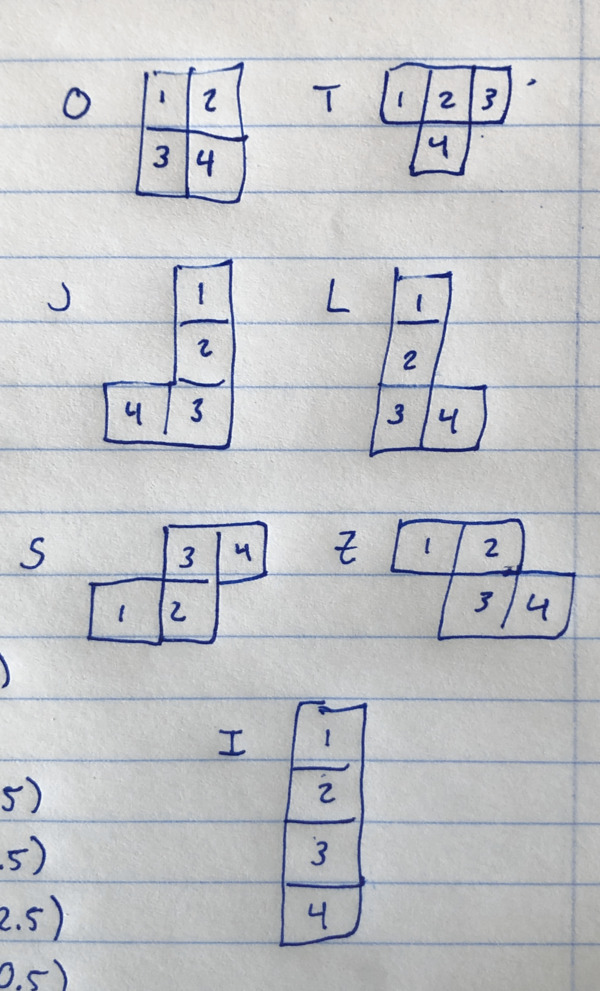 O 1 2 T 1 2 3
3 4 4
J 1 L 1
2 2
4 3 3 4
S 3 4 Z 1 2
1 2 3 4
)
I 1
5) 2
.5) 3
2.5) 4
0.5)